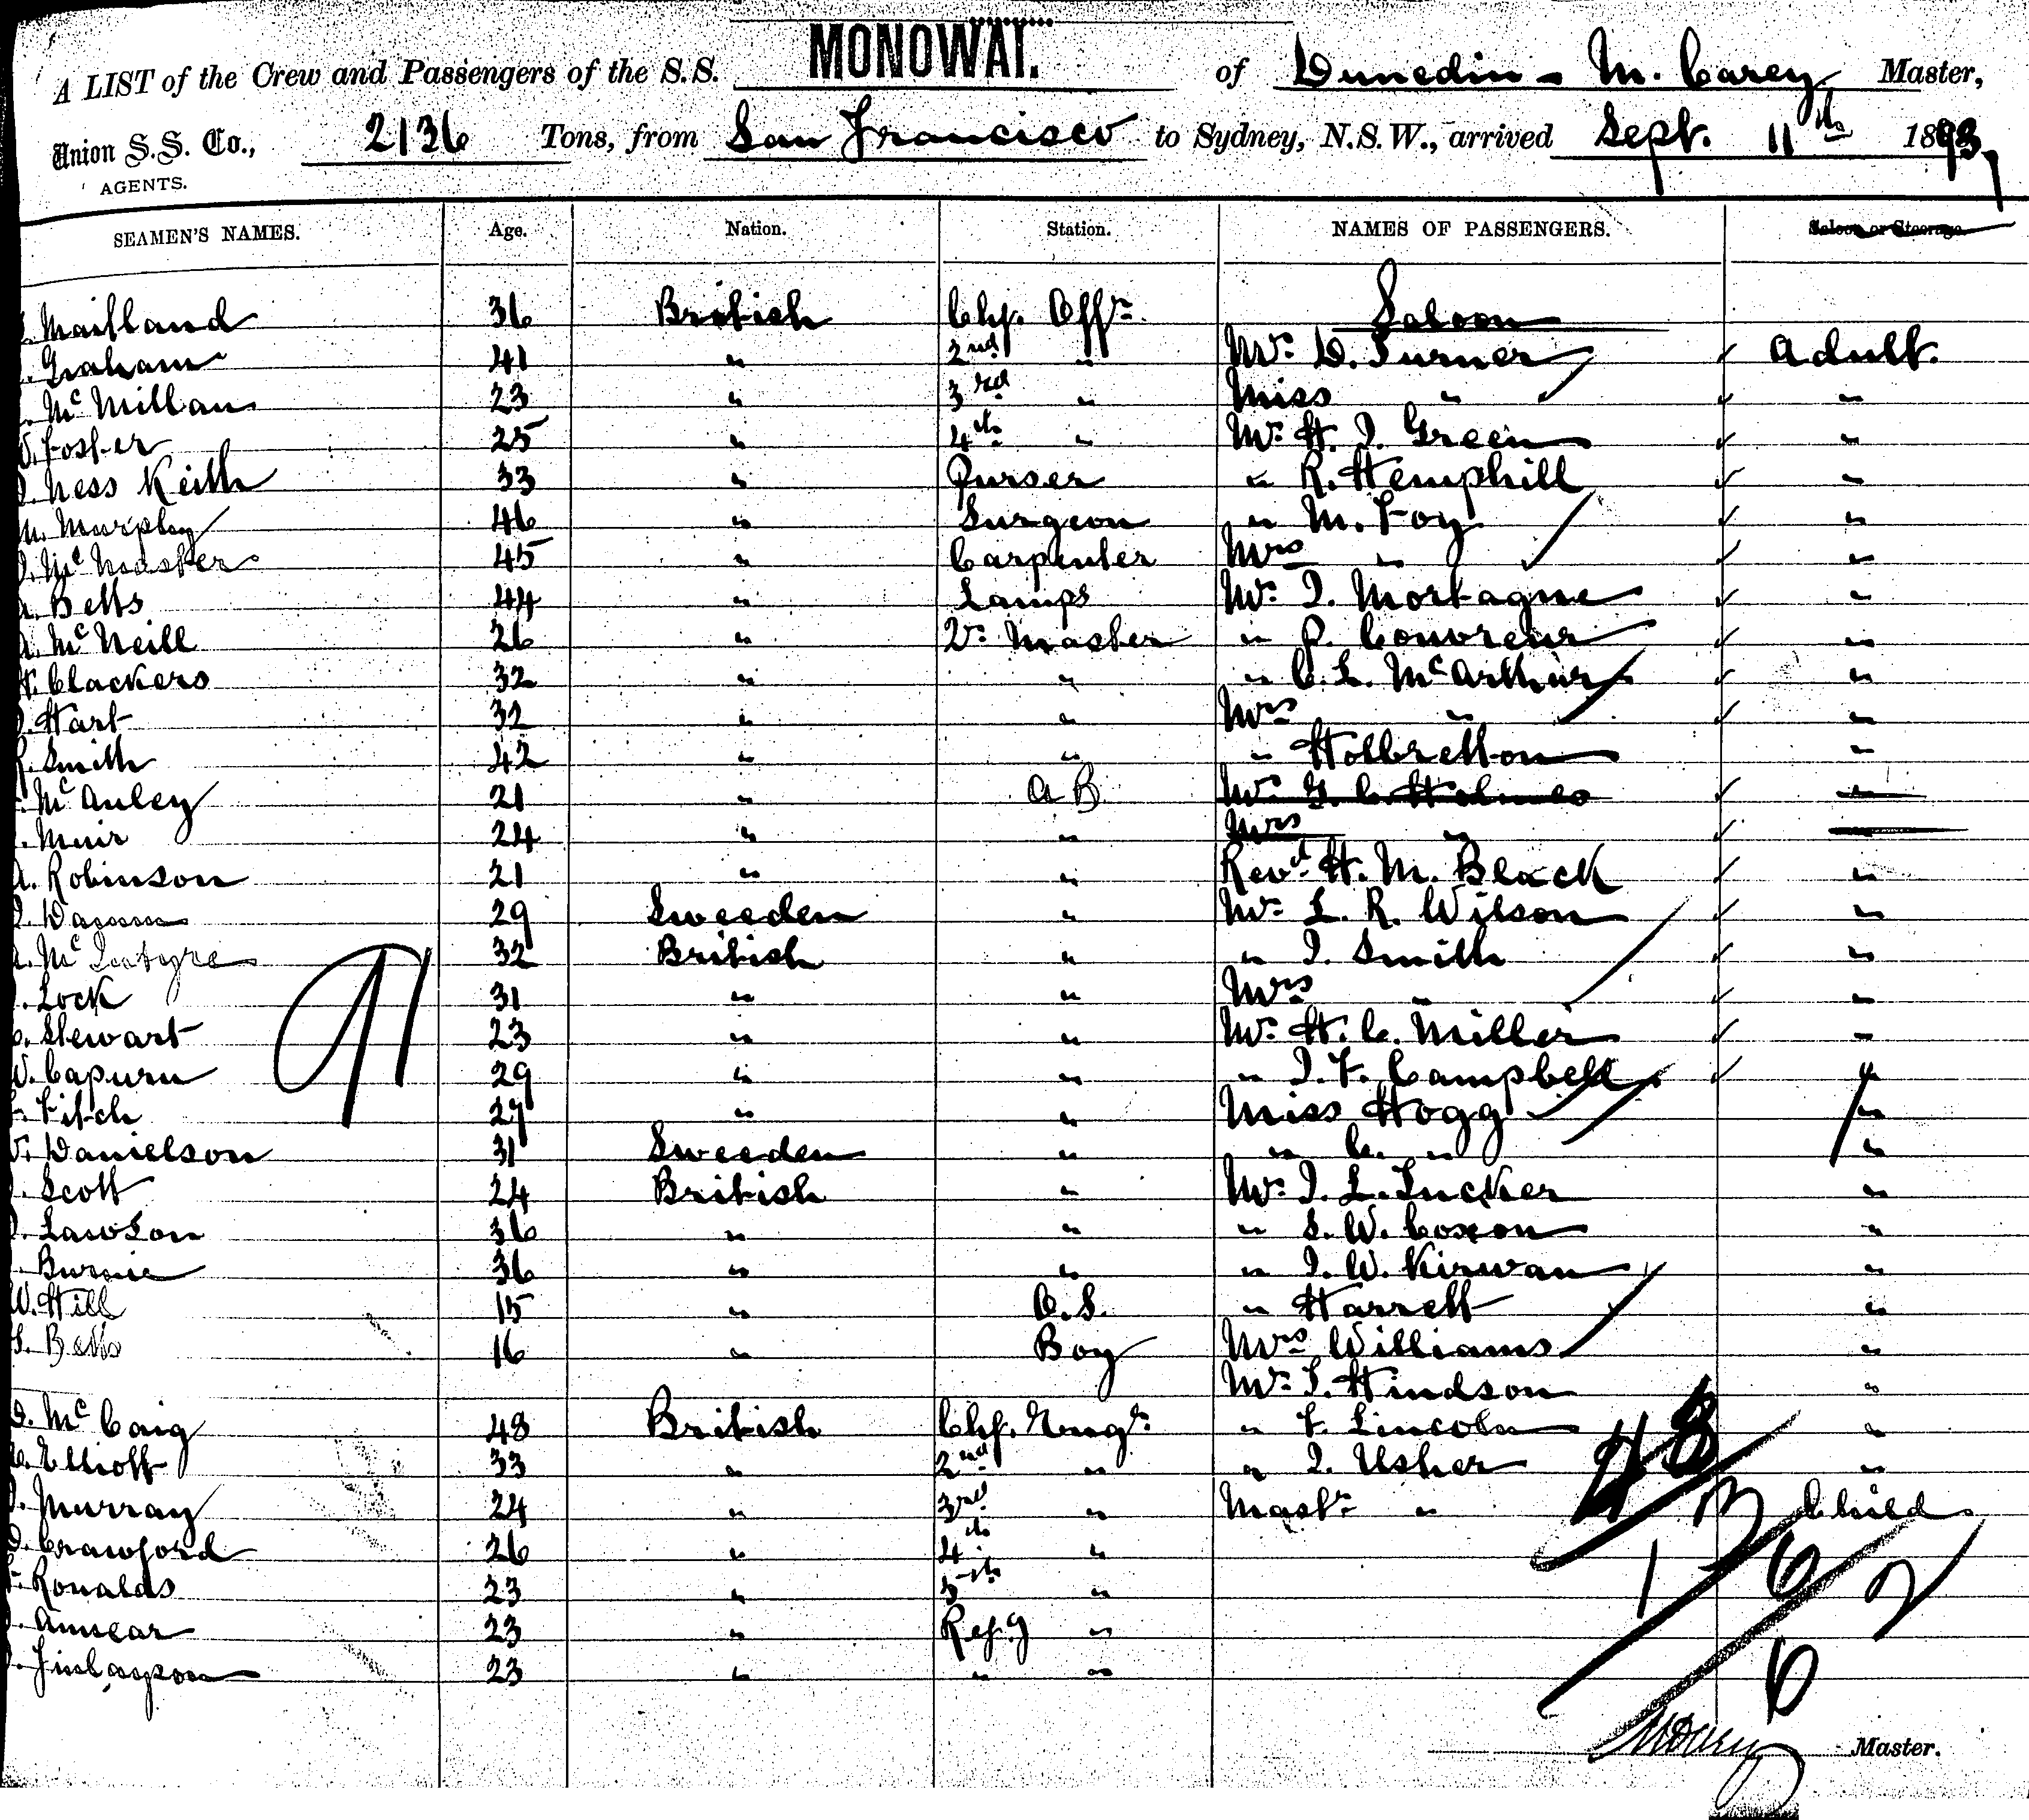 MONOWAI.
A LIST of the Crew and Passengers of the S.S. of Dunedin - M. Carey Master,
Union S.S. Co., 2136 Tons, from San Francisco to Sydney, N.S.W., arrived Sept. 11th 1893
AGENTS.
SEAMEN'S NAMES. Age. Nation. Station. NAMES OF PASSENGERS. Saloon or Steerage.
Maitland 36 British Chf. Offr. Saloon
Graham 41 " 2nd " Mr. D. Turner ✓ Adult.
McMillan 23 " 3rd " Miss " ✓ "
Foster 25 " 4th " Mr. H. J. Green ✓ "
Ness Keith 33 " Purser " R. Hemphill ✓ "
M. Murphy 46 " Surgeon " M. Foy ✓ "
McMaster 45 " Carpenter Mrs " ✓ "
Betts 44 " Lamps Mr. J. Mortagne ✓ "
A. McNeill 26 " Qr. Master " P. Couvreur ✓ "
Clackers 32 " " " C. L. McArthur ✓ "
Hart 32 " " Mrs " ✓ "
Smith 42 " " " Holbretton "
McAuley 21 " A B Mr. G. C. Holmes ✓ "
Muir 24 " " Mrs " ✓
A. Robinson 21 " " Revd. H. M. Black ✓ "
29 Sweeden " Mr. L. R. Wilson ✓ "
McIntyre 32 British " " J. Smith ✓ "
Lock 31 " " Mrs " ✓ "
Stewart 23 " " Mr. H. C. Miller ✓ "
W. Capurn 29 " " " J. F. Campbell ✓ "
Fitch 27 " " Miss Hogg "
Danielson 31 Sweeden " " C. " "
Scott 24 British " Mr. J. L. Tucker "
Lawson 36 " " " S. W. Coxon "
Burnie 36 " " " J. W. Kirwan "
W. Hill 15 " O.S. " Harrett "
Betts 16 " Boy Mrs Williams "
Mr. T. Hindson "
D. McCaig 48 British Chf. Engr. " F. Lincoln "
Elliott 33 " 2nd " " J. Usher "
Murray 24 " 3rd " Mastr. " Child
Crawford 26 " 4th "
Ronalds 23 " 5th "
Annear 23 " Refg "
Finlayson 23 " " "
Master.